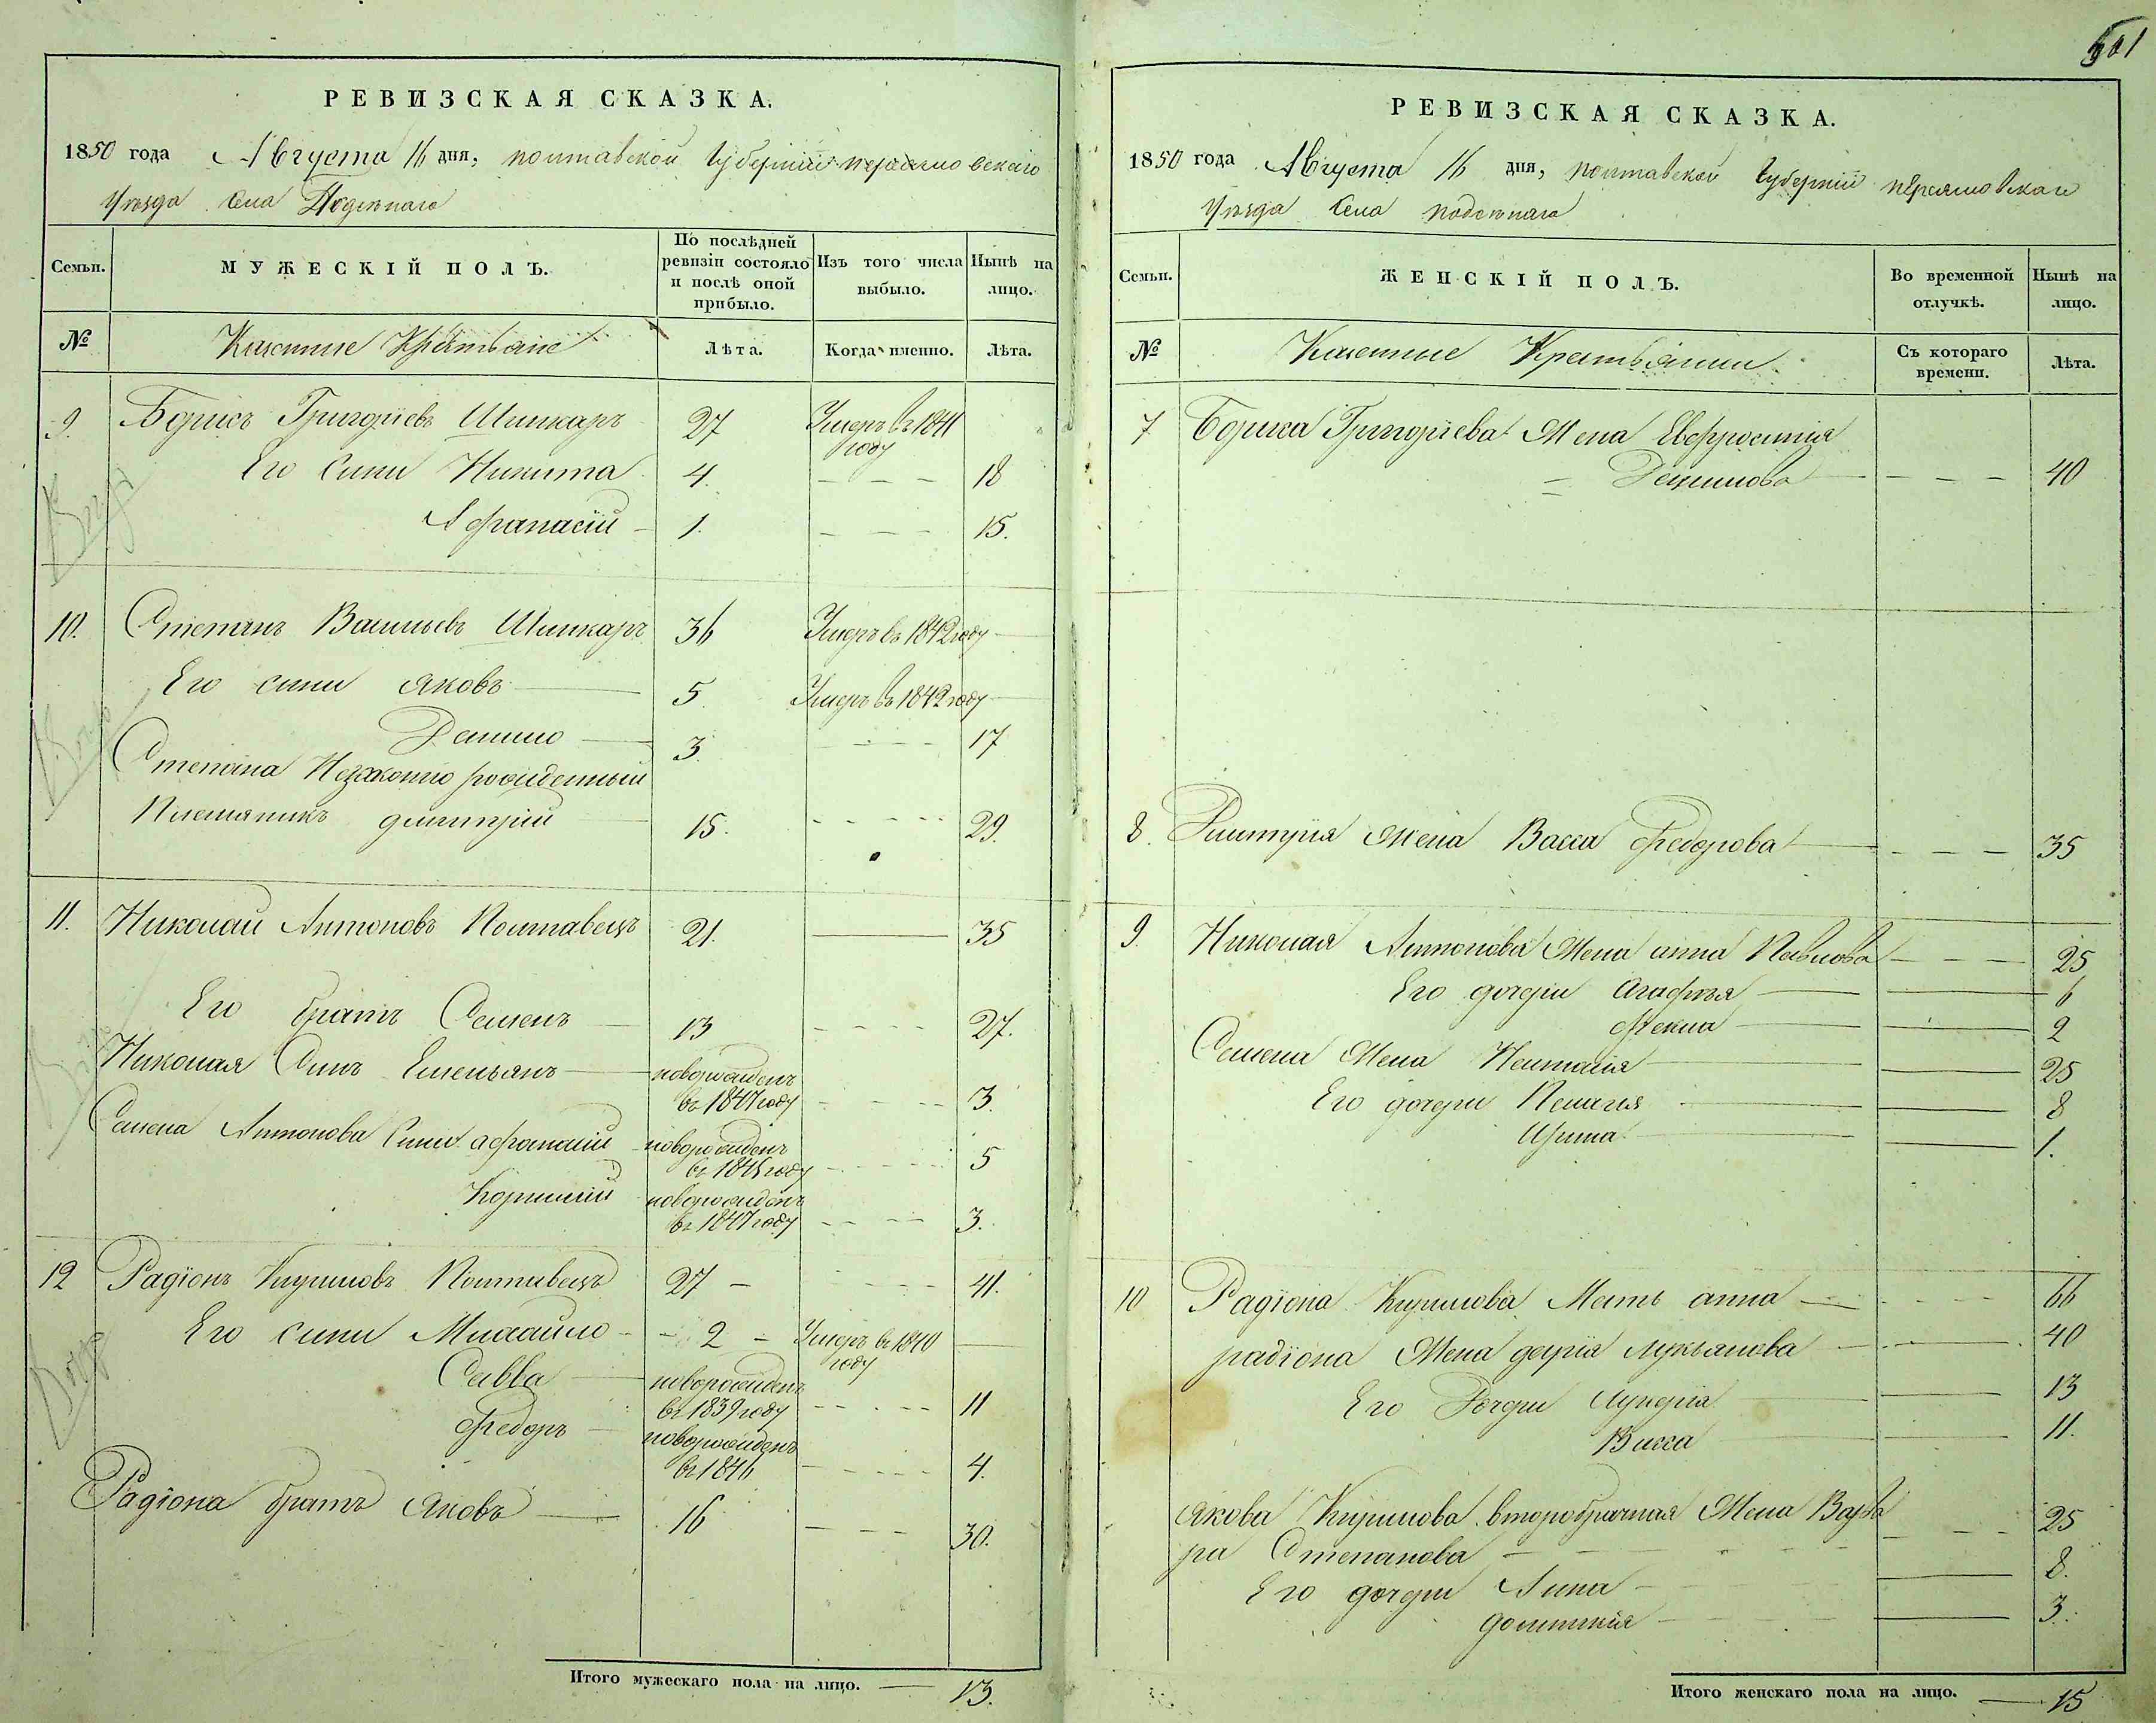 501
РЕВИЗСКАЯ СКАЗКА.
1850 года Августа 16 дня, полтавской Губернии переяславскаго
Уезда Села Подсѣннаго
Семьи.
МУЖЕСКІЙ ПОЛЪ.
По послѣдней ревизіи состояло и послѣ оной прибыло.
Изъ того числа выбыло.
Нынѣ на лицо.
№
Казенные Крестьяне
Лѣта.
Когда именно.
Лѣта.
9. Борисъ Григоріевъ Шинкаръ 27 Умеръ въ 1841 году
Его Сини Никита 4. 18
Афанасій 1. 15.
10. Степанъ Васильевъ Шинкаръ 36 Умеръ въ 1842 году
Его сини Яковъ 5. Умеръ въ 1842 году
Данило 3. 17
Степана Незаконно рожденный
Племяникъ дмитрій 15. 29.
11. Николай Антоновъ Полтавецъ 21. 35
Его братъ Семенъ 13 27.
Николая Синъ Емельянъ новорожденъ въ 1847 году 3.
Семена Антонова Сини афанасій новорожденъ въ 1845 году 5
Корнилій новорожденъ въ 1847 году 3.
12 Радіонъ Кириловъ Полтавецъ 27 41.
Его сини Михайло 2 Умеръ въ 1840 году
Савва новорожденъ въ 1839 году 11
Федоръ новорожденъ въ 1846 4.
Радіона братъ Яковъ 16 30.
Итого мужескаго пола на лицо. 13.
РЕВИЗСКАЯ СКАЗКА.
1850 года Августа 16 дня, полтавской Губерній переяславскаго
Уезда Села подсѣннаго
Семьи.
ЖЕНСКІЙ ПОЛЪ.
Во временной отлучкѣ.
Нынѣ на лицо.
№
Казенные Крестьянки
Съ котораго времени.
Лѣта.
7 Бориса Григоріева Жена Евфросинія
40
8. Дмитрія Жена Васса Федорова 35
9. Николая Антонова Жена анна Павлова 25
Его дочери Агафья 6
Фекла 2
Семена Жена Наталія 25
Его дочери Пелагея 8
Ирина 1.
10 Радіона Кирилова Мать анна 66
радіона Жена дарія лукьянова 40
Его Дочери Лукерія 13
Васса 11.
Якова Кирилова второбрачная Жена Варва
ра Степанова 25
Его дочери Анна 8.
домникія 3.
Итого женскаго пола на лицо. 15